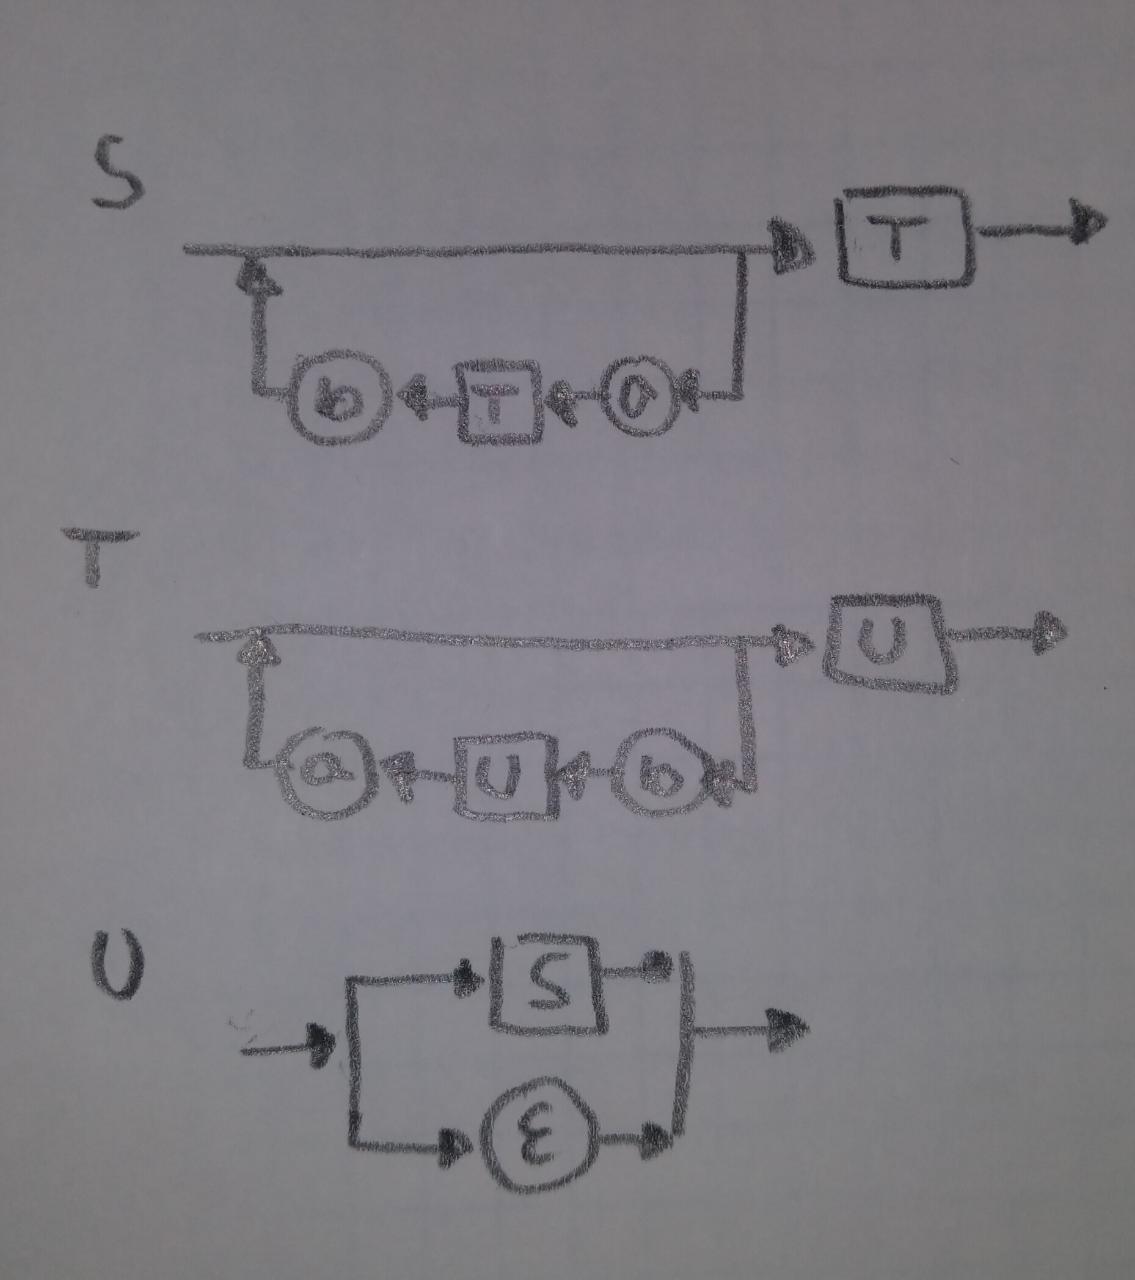 S
T
b T a
T
U
a U b
U
S
ε